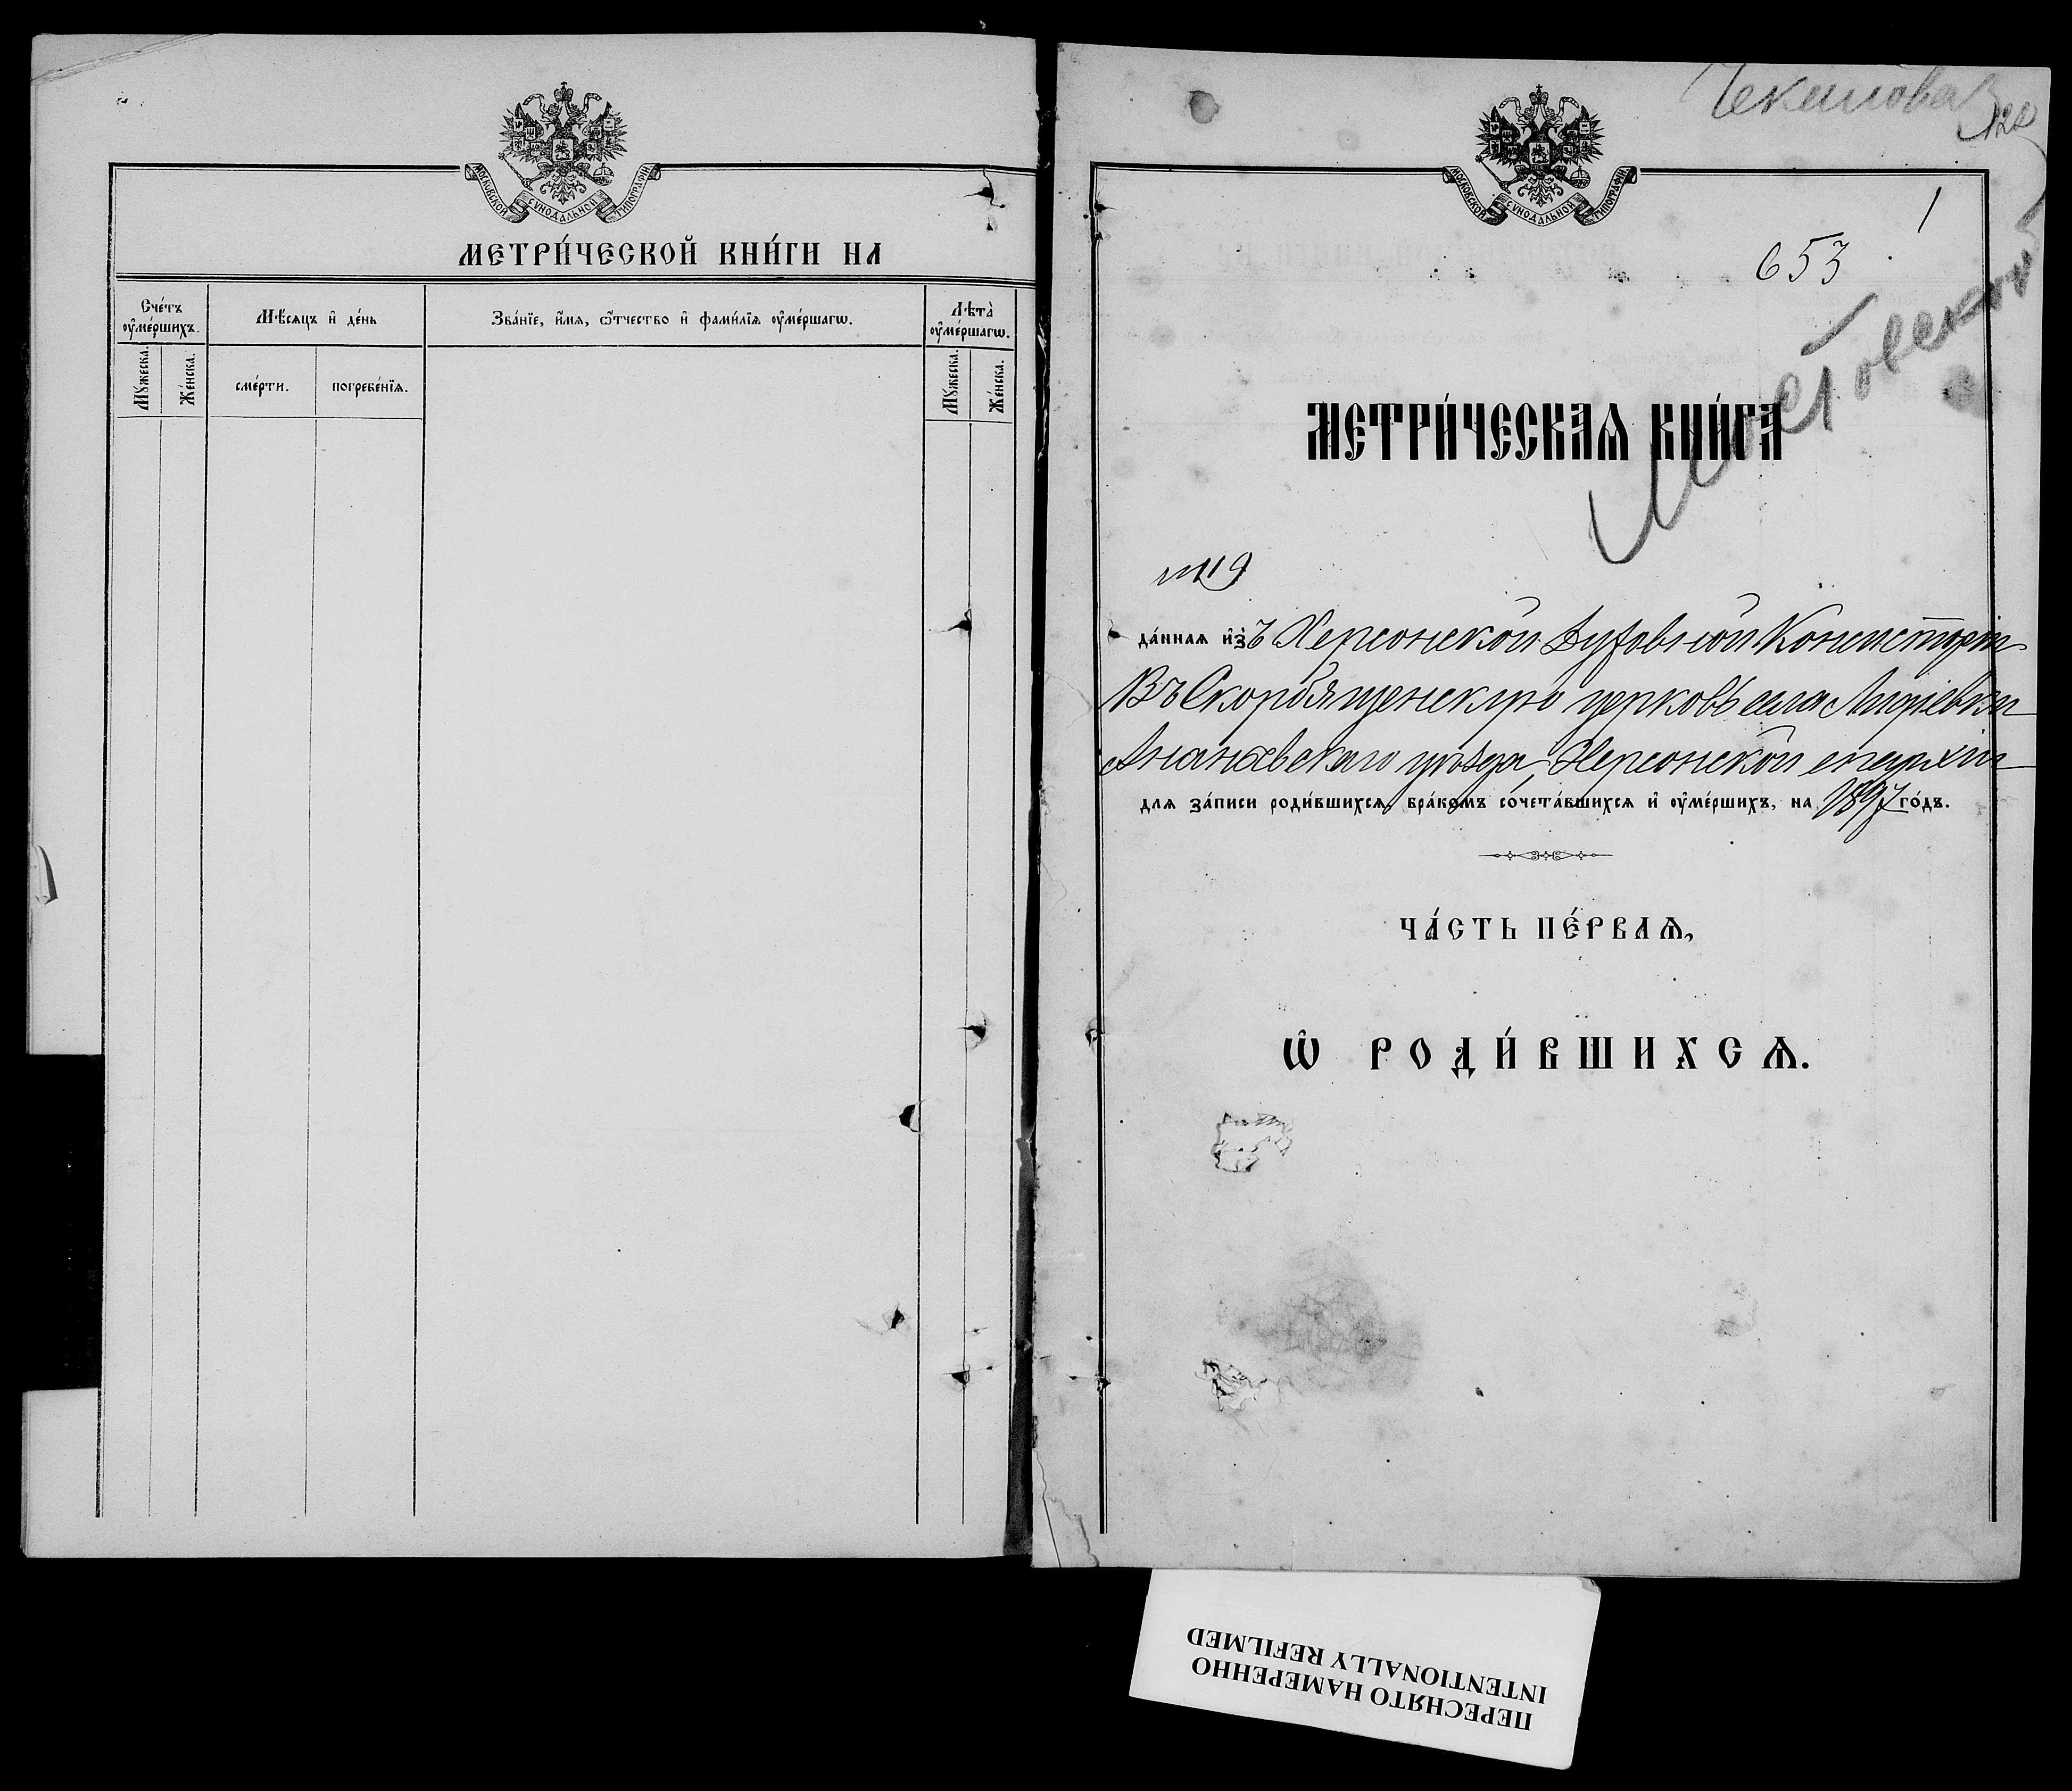 МОСКОВСКОЙ СУНОДАЛЬНОЙ ТИПОГРАФИИ
МЕТРИ́ЧЕСКОЙ КНИ́ГИ НА
Сче́тъ ᲂу҆ме́ршихъ.
Мѣ́сѧцъ и҆ де́нь
Зва́нїе, и҆́мѧ, ѻ҆́тчество и҆ фами́лїѧ ᲂу҆ме́ршагѡ.
Лѣта̀ ᲂу҆ме́ршагѡ.
Мꙋ́жеска.
Же́нска.
сме́рти.
погребе́нїѧ.
Мꙋ́жеска.
Же́нска.
МОСКОВСКОЙ СУНОДАЛЬНОЙ ТИПОГРАФИИ
1
653
МЕТРИ́ЧЕСКАѦ КНИ́ГА
да́ннаѧ и҆зъ Херсонской Духовной Консисторіи
Въ Скорбященскую церковь села
Ананьевскаго уѣзда, Херсонской епархіи
длѧ за́писи роди́вшихсѧ, бра́комъ сочета́вшихсѧ и҆ ᲂу҆ме́ршихъ, на 1897 го́дъ.
ЧА́СТЬ ПЕ́РВАѦ,
Ѡ҆ РОДИ́ВШИХСѦ.
ПЕРЕСНЯТО НАМЕРЕННО
INTENTIONALLY REFILMED